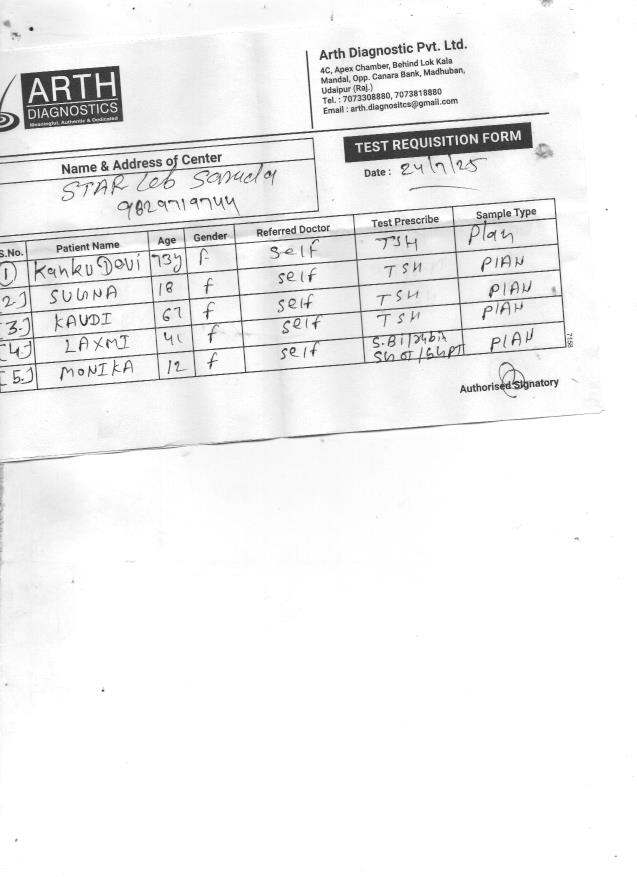 ARTH
DIAGNOSTICS
Meaningful, Authentic & Dedicated
Arth Diagnostic Pvt. Ltd.
4C, Apex Chamber, Behind Lok Kala
Mandal, Opp. Canara Bank, Madhuban,
Udaipur (Raj.)
Tel. : 7073308880, 7073818880
Email : arth.diagnositcs@gmail.com
TEST REQUISITION FORM
Date : 24/7/25
Name & Address of Center
STAR Leb
9829719744
S.No. Patient Name Age Gender Referred Doctor Test Prescribe Sample Type
1 Kanku Devi 73y f self TSH Plan
2.] SUGNA 18 f self TSH PlAN
3.] KAUDI 67 f self TSH PlAN
4.] LAXMI 41 f self TSH PlAN
5.] MONIKA 12 f self S.Bil SGOT/SGPT PLAN
Authorised Signatory
7158